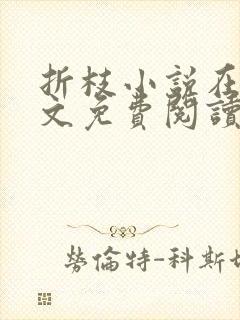 折枝小说在
文免費閱讀
勞倫特-科斯坦